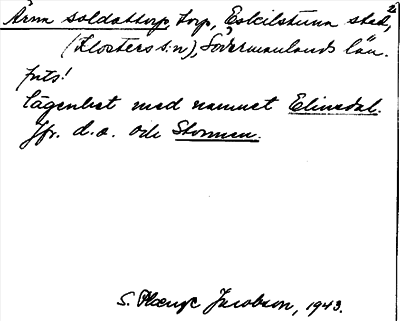 Ärna soldattorp, torp, Eskilstuna stad, 2
(Klosters s:n), Södermanlands län.
Lägenhet med namnet Elinedal.
Jfr. d.o. och Stormen.
S. Jacobson, 1943.